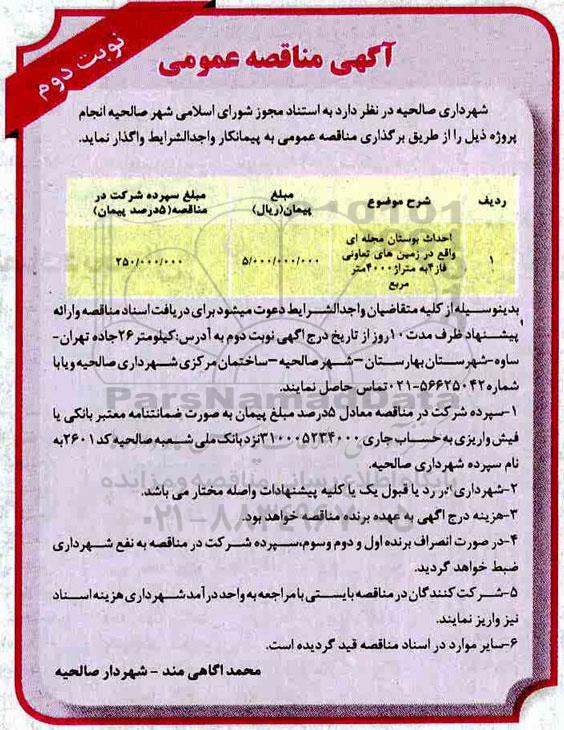 نوبت دوم
آگهی مناقصه عمومی
شهرداری صالحیه در نظر دارد به استناد مجوز شورای اسلامی شهر صالحیه انجام
پروژه ذیل را از طریق برگذاری مناقصه عمومی به پیمانکار واجدالشرایط واگذار نماید.
ردیف شرح موضوع مبلغ پیمان(ریال) مبلغ سپرده شرکت در مناقصه(۵درصد پیمان)
۱ احداث بوستان محله ای واقع در زمین های تعاونی فاز۴به متراژ۴۰۰۰متر مربع ۵/۰۰۰/۰۰۰/۰۰۰ ۲۵۰/۰۰۰/۰۰۰
بدینوسیله از کلیه متقاضیان واجدالشرایط دعوت میشود برای دریافت اسناد مناقصه وارائه
پیشنهاد ظرف مدت۱۰روز از تاریخ درج اگهی نوبت دوم به آدرس:کیلومتر۲۶جاده تهران-
ساوه-شهرستان بهارستان-شهر صالحیه-ساختمان مرکزی شهرداری صالحیه ویا با
شماره۵۶۶۲۵۰۴۲-۰۲۱تماس حاصل نمایند.
۱-سپرده شرکت در مناقصه معادل ۵درصد مبلغ پیمان به صورت ضمانتنامه معتبر بانکی یا
فیش واریزی به حساب جاری ۳۱۰۰۰۵۲۳۴۰۰۰نزد بانک ملی شعبه صالحیه کد۲۶۰۱به
نام سپرده شهرداری صالحیه.
۲-شهرداری در رد یا قبول یک یا کلیه پیشنهادات واصله مختار می باشد.
۳-هزینه درج اگهی به عهده برنده مناقصه خواهد بود.
۴-در صورت انصراف برنده اول و دوم وسوم،سپرده شرکت در مناقصه به نفع شهرداری
ضبط خواهد گردید.
۵-شرکت کنندگان در مناقصه بایستی با مراجعه به واحد درآمد شهرداری هزینه اسناد
نیز واریز نمایند.
۶-سایر موارد در اسناد مناقصه قید گردیده است.
محمد اگاهی مند - شهردار صالحیه
ParsNamadData